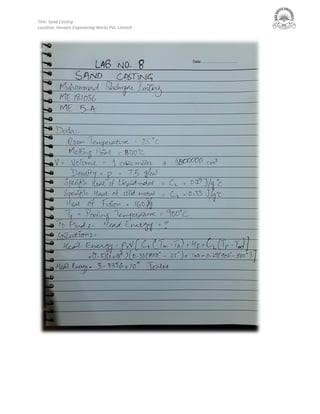 Title: Sand Casting
Location: Hussain Engineering Works Pvt. Limited
Date:
LAB NO. 8
SAND CASTING
Muhammad
ME 181056
ME 5-A
Data:-
Room Temperature = 25°C
Melting Point = 800°C
V = Volume = 1 cubic meter = 1000000 cm³
Density = ρ = 7.5 g/cm³
Specific Heat of Liquid metal = CL = 0.29 J/g°C
Specific Heat of solid metal = Cs = 0.33 J/g°C
Heat of Fusion = 160 J/g
Tp = Pouring Temperature = 900°C
To Find:- Head Energy = ?
Calculations:-
Head Energy = ρV [Cs (Tm - To) + Hf + CL (Tp - Tm)]
Head Energy = 3.3356 × 10⁹ Joules